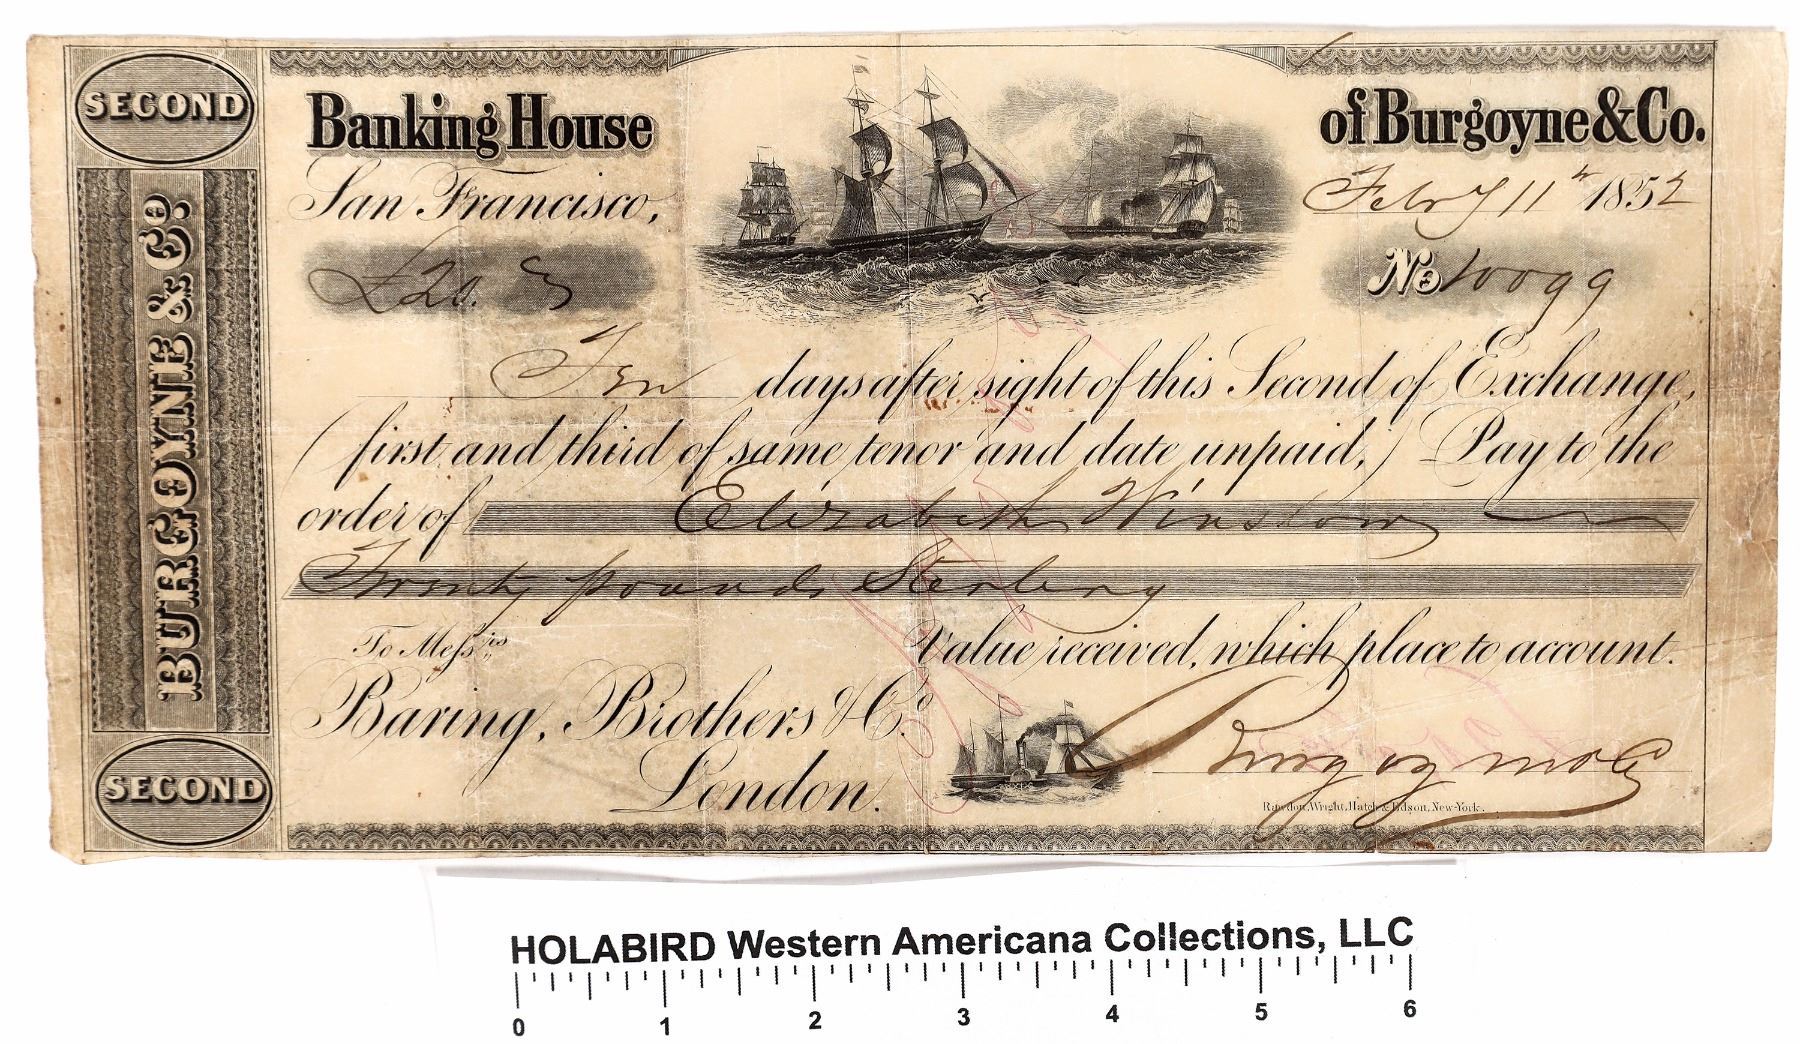 SECOND
BURGOYNE & Co.
SECOND
Banking House of Burgoyne & Co.
San Francisco, Feby 11th 1852
£20. No 10099
Ten days after sight of this Second of Exchange,
(first and third of same tenor and date unpaid,) Pay to the
order of Elizabeth Winslow
Twenty pounds Sterling
Value received, which place to account.
To Messrs
Baring, Brothers & Co.
London.
Burgoyne & Co
Rawdon, Wright, Hatch & Edson, New-York.
HOLABIRD Western Americana Collections, LLC
0 1 2 3 4 5 6